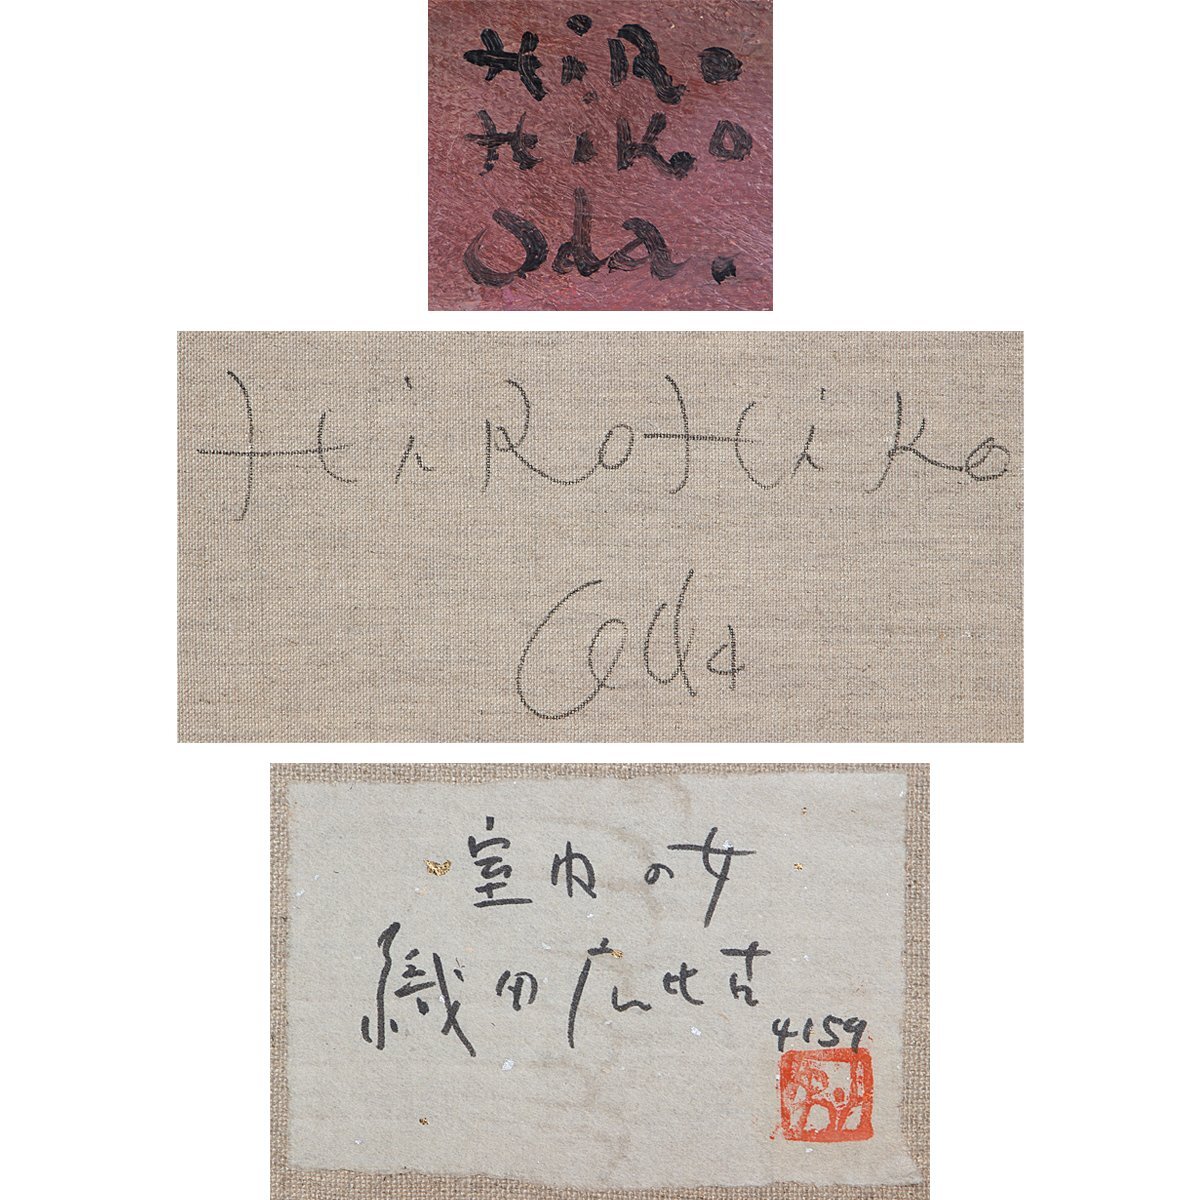 HiRo
HiKo
Oda.
HiRoHiKo
Oda
室内の女
織田広比古
4159